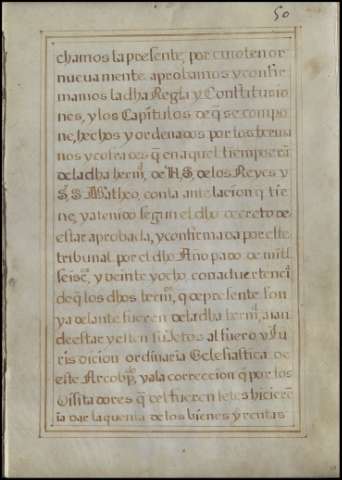 50
chamos la presente, por cuio tenor
nueuamente aprobamos y confir
mamos la dha Regla y Constitusio
nes, y los Capitulos de q̃ se compo
ne, hechos y ordenados por los herma
nos y cofrades q̃ en aquel tiempo erã
de la dha herm.ᵈ de N. S. de los Reyes y
S. S. Matheo, con la antelacion q̃ tie
ne, ya tenido segun el dho decreto de
estar aprobada, y confirmada por este
tribunal por el dho Año pado de mill
seisc.ˢ y veinte y ocho, con aduertenci.ª
de q̃ los dhos herm.ˢ q̃ de presente son
y adelante fueren de la dha herm.ᵈ aian
de estar y esten sujetos al fuero y Ju
risdicion ordinaria Eclesiastica de
este Arcobp.ᵈᵒ y a la correccion q̃ por los
Visitadores q̃ del fueren se les hiciere
ia dar la quenta de los bienes y rentas